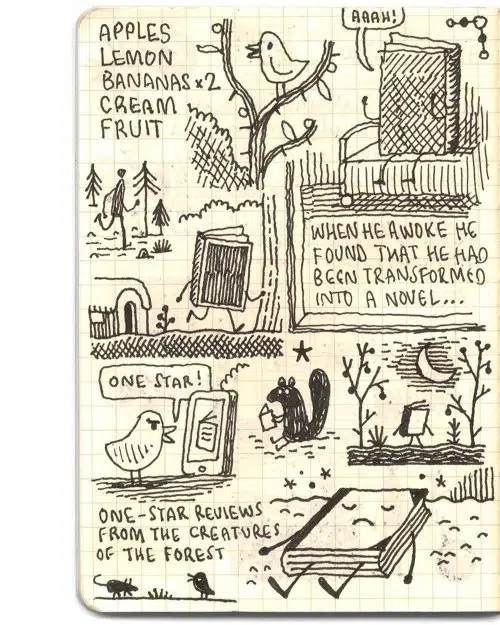 APPLES
LEMON
BANANAS x2
CREAM
FRUIT
AAAH!
WHEN HE AWOKE HE
FOUND THAT HE HAD
BEEN TRANSFORMED
INTO A NOVEL...
ONE STAR!
ONE-STAR REVIEWS
FROM THE CREATURES
OF THE FOREST